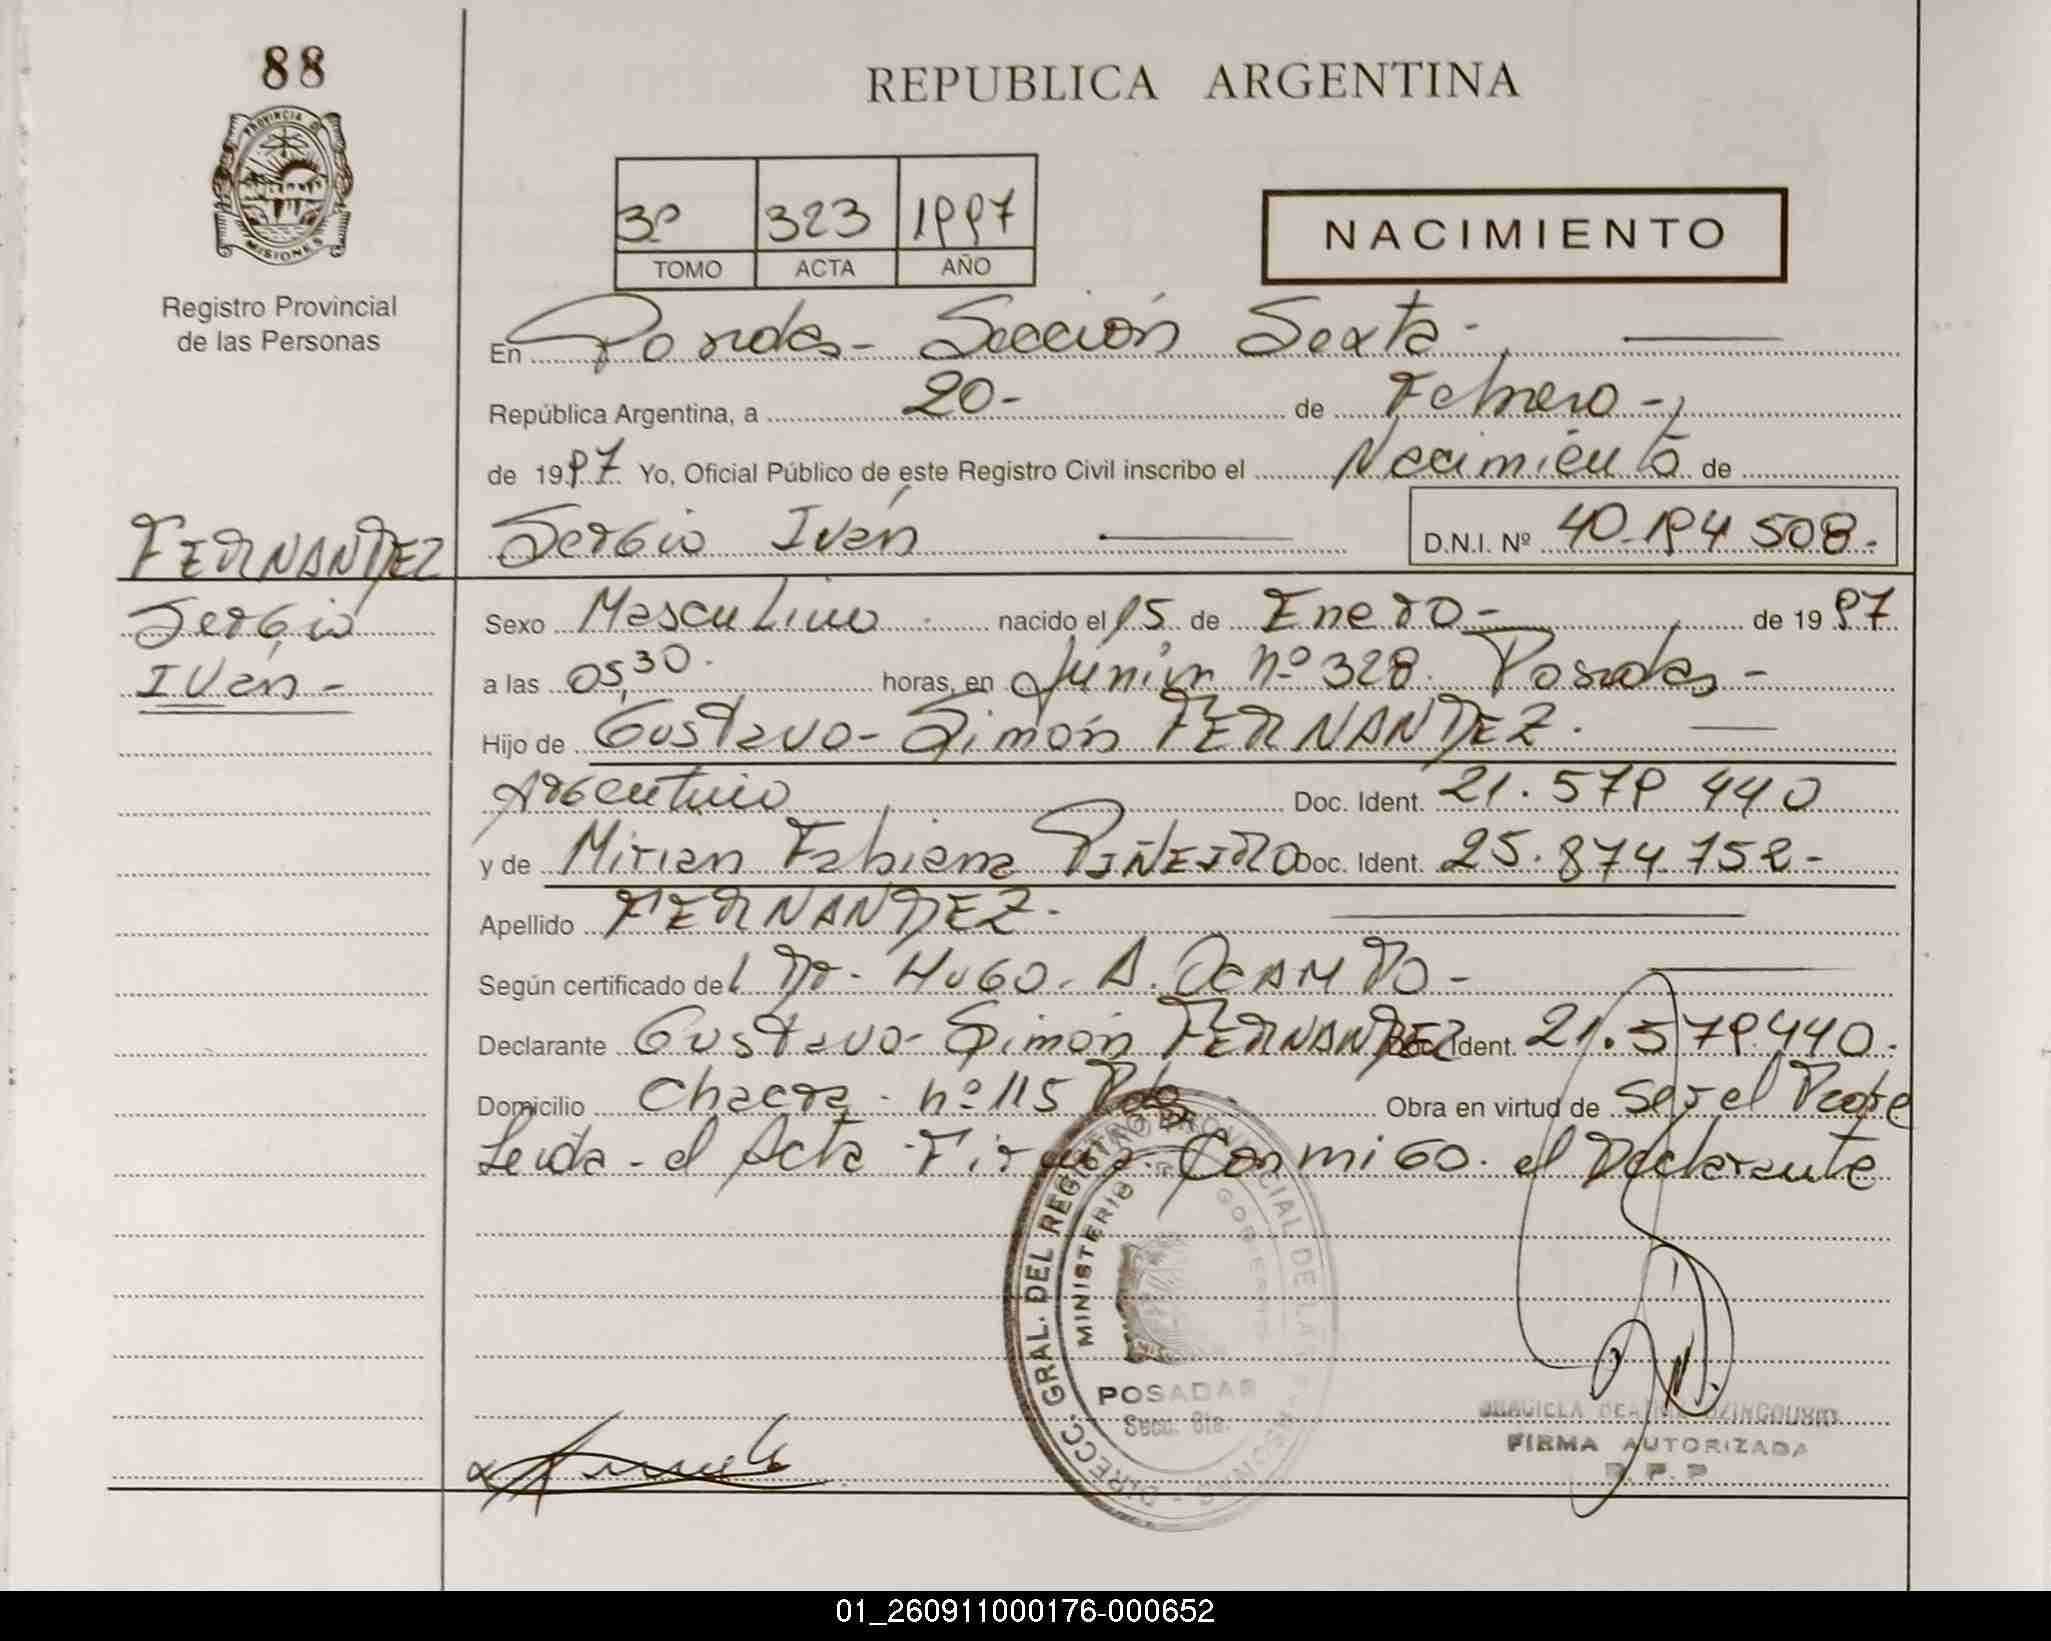 88
REPUBLICA ARGENTINA
PROVINCIA D
MISIONES
Registro Provincial
de las Personas
3º 323 1997
TOMO ACTA AÑO
NACIMIENTO
En Posadas - Sección Sexta -
República Argentina, a 20 - de Febrero -
de 1997 Yo, Oficial Público de este Registro Civil inscribo el Nacimiento de
FERNANDEZ
Sergio Iván
D.N.I. Nº 40.194 508.-
Sergio
Iván -
Sexo Masculino . nacido el 15 de Enero - de 1997
a las 05,30. horas, en Junín nº 328. Posadas -
Hijo de Gustavo - Simón FERNANDEZ.
Argentino Doc. Ident. 21.579 440
y de Mirian Fabiana PIÑEIRO Doc. Ident. 25.874.752 -
Apellido FERNANDEZ.
Según certificado del Dr. HUGO. A. OCAMPO -
Declarante Gustavo - Simón FERNANDEZ Doc. Ident. 21.579.440.
Domicilio Chacra - nº 115 Pdas Obra en virtud de ser el Padre
Leída - el Acta - Firma Conmigo. el Declarante
DIRECC. GRAL. DEL REGISTRO PROVINCIAL DE LAS MISIONES
MINISTERIO GOBIERNO
POSADAS
Secc. 6ta.
GRACIELA BEATRIZ
FIRMA AUTORIZADA
R. P. P
01_260911000176-000652